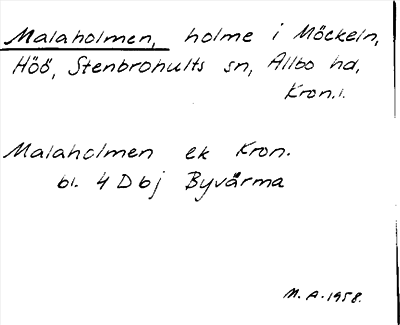 Malaholmen, holme i Möckeln,
Höö, Stenbrohults sn, Allbo hd,
Kron.l.
Malaholmen ek Kron.
bl. 4 D bj Byvärma
M. A. 1958.